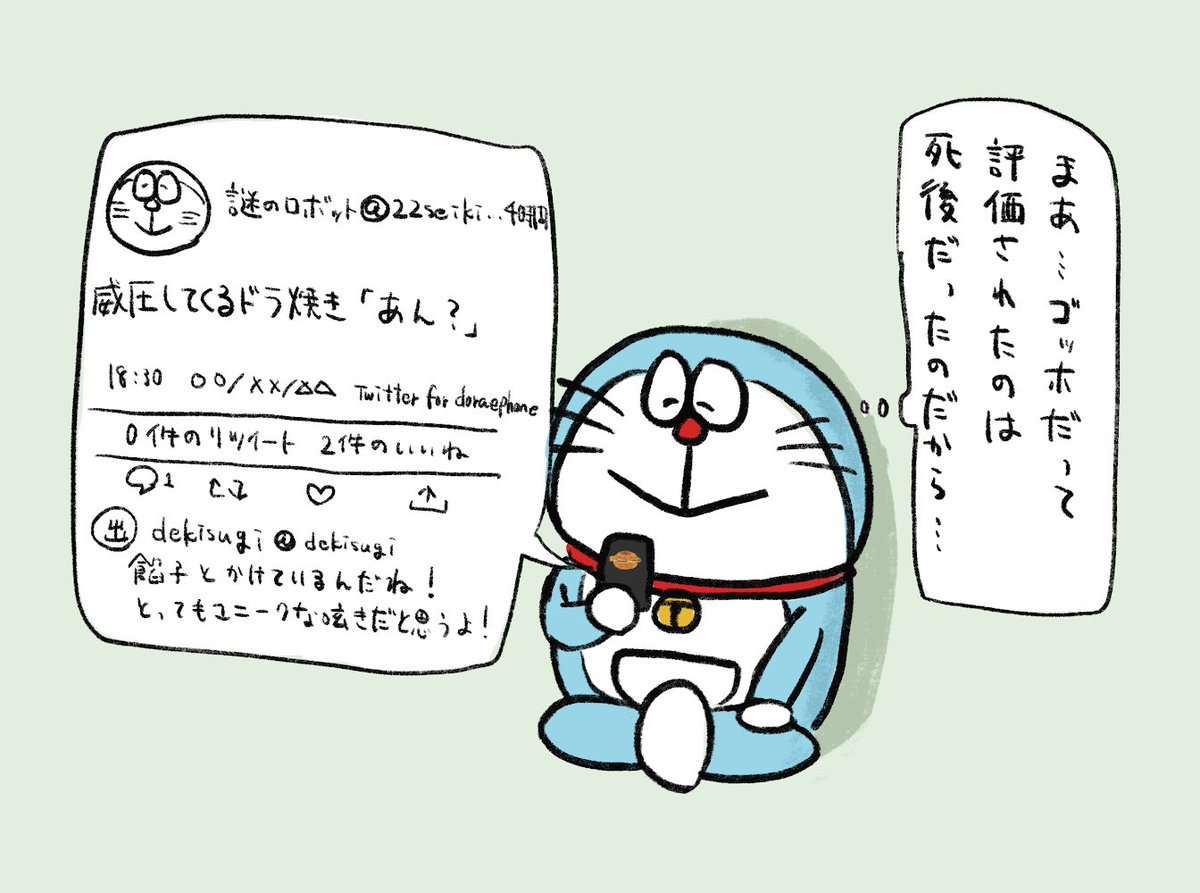 まあ…ゴッホだって
評価されたのは
死後だったのだから…
謎のロボット@22seiki..4時間
威圧してくるドラ焼き「あん?」
18:30 〇〇/××/△△ Twitter for doraephone
0件のリツイート 2件のいいね
1
出 dekisugi @dekisugi
餡子とかけているんだね!
とってもユニークな呟きだと思うよ!